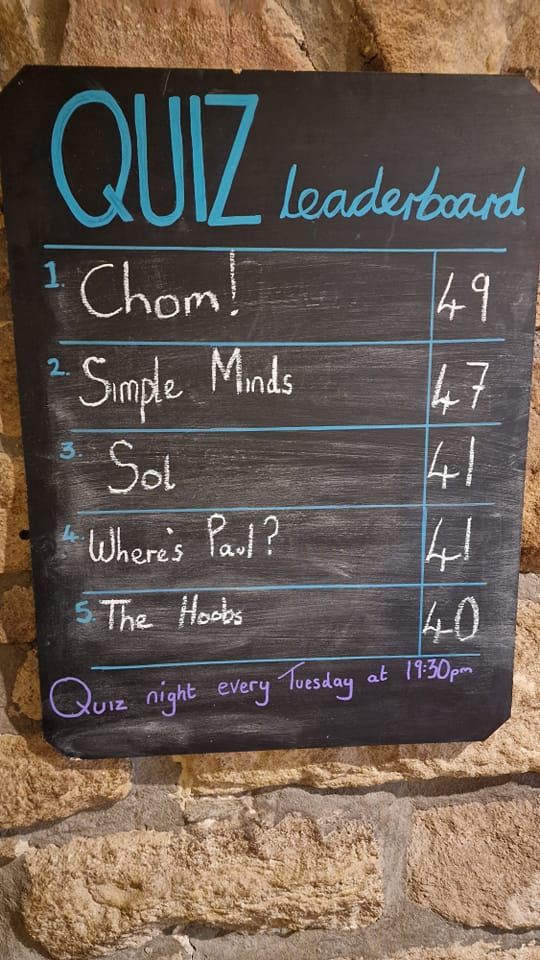 QUIZ Leaderboard
1. Chom! 49
2. Simple Minds 47
3. Sol 41
4. Where's Paul? 41
5. The Hoobs 40
Quiz night every Tuesday at 19:30pm